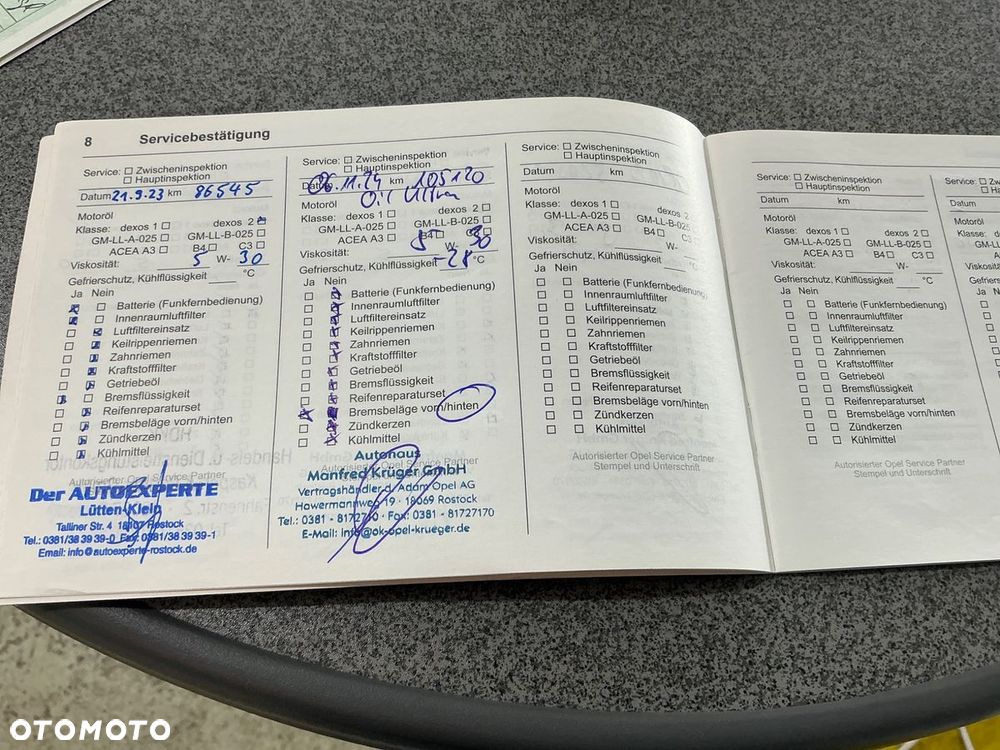 8 Servicebestätigung
Service: Zwischeninspektion
Hauptinspektion
Datum 21.9.23 km 86545
Motoröl
Klasse: dexos 1 dexos 2
GM-LL-A-025 GM-LL-B-025
ACEA A3 B4 C3
Viskosität: 5 W- 30
Gefrierschutz, Kühlflüssigkeit °C
Ja Nein
Batterie (Funkfernbedienung)
Innenraumluftfilter
Luftfiltereinsatz
Keilrippenriemen
Zahnriemen
Kraftstofffilter
Getriebeöl
Bremsflüssigkeit
Reifenreparaturset
Bremsbeläge vorn/hinten
Zündkerzen
Kühlmittel
Autorisierter Opel Service Partner
Der AUTOEXPERTE
Lütten-Klein
Talliner Str. 4 18107 Rostock
Tel.: 0381/38 39 39-0 Fax: 0381/38 39 39-1
Email: info@autoexperte-rostock.de
Service: Zwischeninspektion
Hauptinspektion
Datum 06.11.24 km 105120
Motoröl
Klasse: dexos 1 dexos 2
GM-LL-A-025 GM-LL-B-025
ACEA A3 B4 C3
Viskosität: 5 W- 30
Gefrierschutz, Kühlflüssigkeit -28 °C
Ja Nein
Batterie (Funkfernbedienung)
Innenraumluftfilter
Luftfiltereinsatz
Keilrippenriemen
Zahnriemen
Kraftstofffilter
Getriebeöl
Bremsflüssigkeit
Reifenreparaturset
Bremsbeläge vorn/hinten
Zündkerzen
Kühlmittel
Autohaus
Manfred Krüger GmbH
Vertragshändler d. Adam Opel AG
Hawermannweg 19 · 18069 Rostock
Tel.: 0381 - Fax: 0381 - 81727170
E-Mail: info@ok-opel-krueger.de
Service: Zwischeninspektion
Hauptinspektion
Datum km
Motoröl
Klasse: dexos 1 dexos 2
GM-LL-A-025 GM-LL-B-025
ACEA A3 B4 C3
Viskosität: W-
Gefrierschutz, Kühlflüssigkeit °C
Ja Nein
Batterie (Funkfernbedienung)
Innenraumluftfilter
Luftfiltereinsatz
Keilrippenriemen
Zahnriemen
Kraftstofffilter
Getriebeöl
Bremsflüssigkeit
Reifenreparaturset
Bremsbeläge vorn/hinten
Zündkerzen
Kühlmittel
Autorisierter Opel Service Partner
Stempel und Unterschrift
Service: Zwischeninspektion
Hauptinspektion
Datum km
Motoröl
Klasse: dexos 1 dexos 2
GM-LL-A-025 GM-LL-B-025
ACEA A3 B4 C3
Viskosität: W-
Gefrierschutz, Kühlflüssigkeit °C
Ja Nein
Batterie (Funkfernbedienung)
Innenraumluftfilter
Luftfiltereinsatz
Keilrippenriemen
Zahnriemen
Kraftstofffilter
Getriebeöl
Bremsflüssigkeit
Reifenreparaturset
Bremsbeläge vorn/hinten
Zündkerzen
Kühlmittel
Autorisierter Opel Service Partner
Stempel und Unterschrift
Service:
Datum
Motoröl
Klasse:
Viskosität:
Ja Nein
OTOMOTO